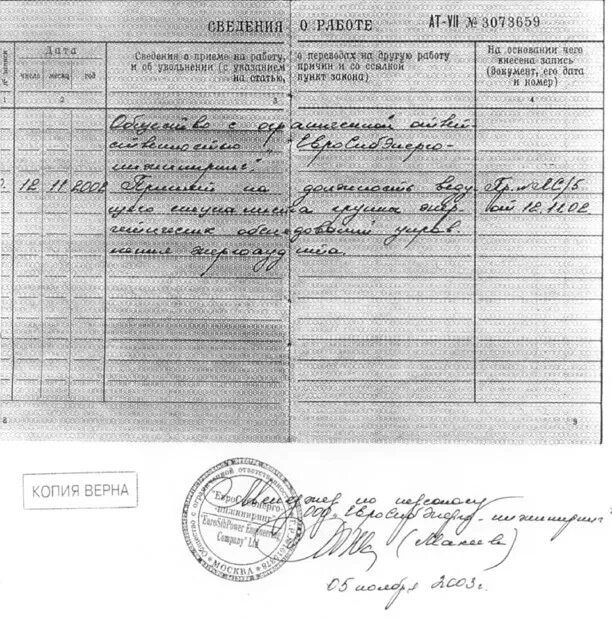 СВЕДЕНИЯ О РАБОТЕ АТ-VII № 3073659
№ записи
Дата
число месяц год
Сведения о приеме на работу, о переводах на другую работу
и об увольнении (с указанием причин и со ссылкой
на статью, пункт закона)
На основании чего
внесена запись
(документ, его дата
и номер)
1 2 3 4
Общество с ограниченной ответ-
ственностью "ЕвроСибЭнерго-
инжиниринг".
12 11 2002 Принят на должность веду- Пр. №
щего специалиста группы энер- от 12.11.02.
гетических обследований управ-
ления энергоаудита.
8 9
КОПИЯ ВЕРНА
Общество с ограниченной ответственностью
"ЕвроСибЭнерго-
инжиниринг"
"EuroSibPower Engineering
Company" Ltd
МОСКВА
Менеджер по персоналу
ООО "ЕвроСибЭнерго-инжиниринг"
05 ноября 2003г.